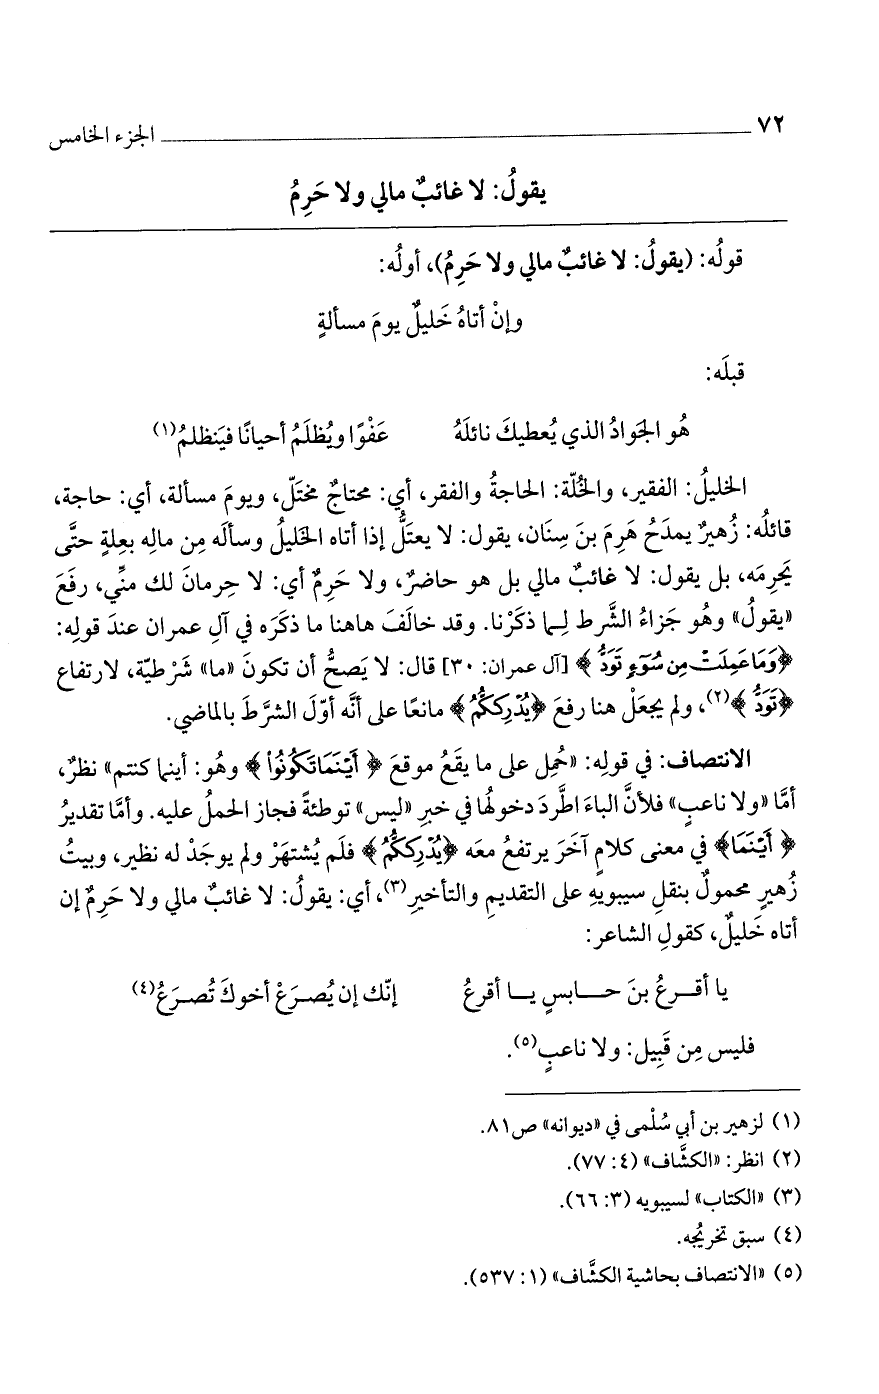 ٧٢ الجزء الخامس
يقولُ: لا غائبٌ مالي ولا حَرِمُ
قولُه: (يقولُ: لا غائبٌ مالي ولا حَرِمُ)، أولُه:
وإنْ أتاهُ خَليلٌ يومَ مسألةٍ
قبلَه:
هُو الجَوادُ الذي يُعطيكَ نائلَهُ عَفْوًا ويُظلَمُ أحيانًا فيَنظلمُ(١)
الخليلُ: الفقير، والخُلّة: الحاجةُ والفقر، أي: محتاجٌ مختَلّ، ويومَ مسألة، أي: حاجة،
قائلُه: زُهيرٌ يمدَحُ هَرِمَ بنَ سِنَان، يقول: لا يعتَلُّ إذا أتاه الخَليلُ وسألَه مِن مالِه بعِلةٍ حتَّى
يَحرِمَه، بل يقول: لا غائبٌ مالي بل هو حاضرٌ، ولا حَرِمٌ أي: لا حِرمانَ لك منِّي، رفَعَ
«يقولُ» وهُو جَزاءُ الشَّرط لِما ذكَرْنا. وقد خالَفَ هاهنا ما ذكَرَه في آلِ عمران عندَ قولِه:
﴿وَمَا عَمِلَتْ مِن سُوٓءٍ تَوَدُّ﴾ [آل عمران: ٣٠] قال: لا يَصحُّ أن تكونَ «ما» شَرْطيّة، لارتفاع
﴿تَوَدُّ﴾(٢)، ولم يجعَلْ هنا رفعَ ﴿يُدْرِككُّمُ﴾ مانعًا على أنَّه أوّلَ الشرَّطَ بالماضي.
الانتصاف: في قولِه: «حُمِل على ما يقَعُ موقعَ ﴿أَيْنَمَا تَكُونُوا۟﴾ وهُو: أينما كنتم» نظرٌ،
أمَّا «ولا ناعبٍ» فلأنَّ الباءَ اطَّردَ دخولُها في خبرِ «ليس» توطئةً فجاز الحملُ عليه. وأمَّا تقديرُ
﴿أَيْنَمَا﴾ في معنى كلامٍ آخَرَ يرتفعُ معَه ﴿يُدْرِككُّمُ﴾ فلَم يُشتهَرْ ولم يوجَدْ له نظير، وبيتُ
زُهيرٍ محمولٌ بنقلِ سيبويهِ على التقديمِ والتأخيرِ(٣)، أي: يقولُ: لا غائبٌ مالي ولا حَرِمٌ إن
أتاه خَليلٌ، كقولِ الشاعر:
يا أقـرعُ بنَ حـابسٍ يـا أقرعُ إنّك إن يُصـرَعْ أخوكَ تُصـرَعُ(٤)
فليس مِن قَبِيل: ولا ناعبٍ(٥).
(١) لزهير بن أبي سُلْمى في «ديوانه» ص٨١.
(٢) انظر: «الكشَّاف» (٤: ٧٧).
(٣) «الكتاب» لسيبويه (٣: ٦٦).
(٤) سبق تخريجُه.
(٥) «الانتصاف بحاشية الكشَّاف» (١: ٥٣٧).